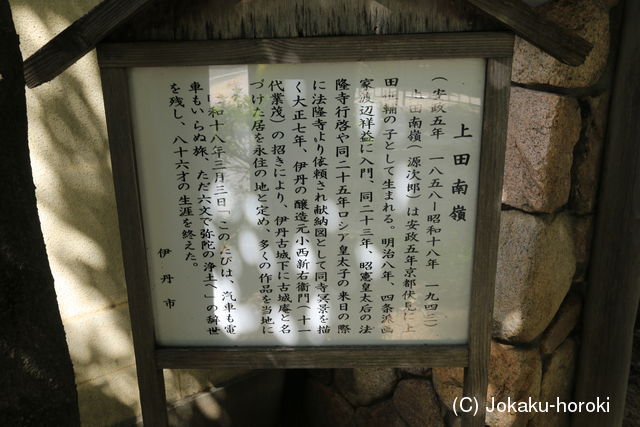 上田南嶺
(安政五年 一八五八―昭和十八年 一九四三)
上田南嶺(源次郎)は安政五年京都伏見に上
田 輔の子として生まれる。明治八年、四条派画
家渡辺祥益に入門、同二十三年、昭憲皇太后の法
隆寺行啓や同二十五年ロシア皇太子の来日の際
に法隆寺より依頼され献納図として同寺冥景を描
く大正七年、伊丹の醸造元小西新右衛門(十一
代業茂)の招きにより、伊丹古城下に古城庵と名
づけた居を永住の地と定め、多くの作品を当地に
昭和十八年三月三日「このたびは、汽車も電
車もいらぬ旅、ただ六文で弥陀の浄土へ」の辞世
を残し、八十六才の生涯を終えた。
伊丹市
(C) Jokaku-horoki